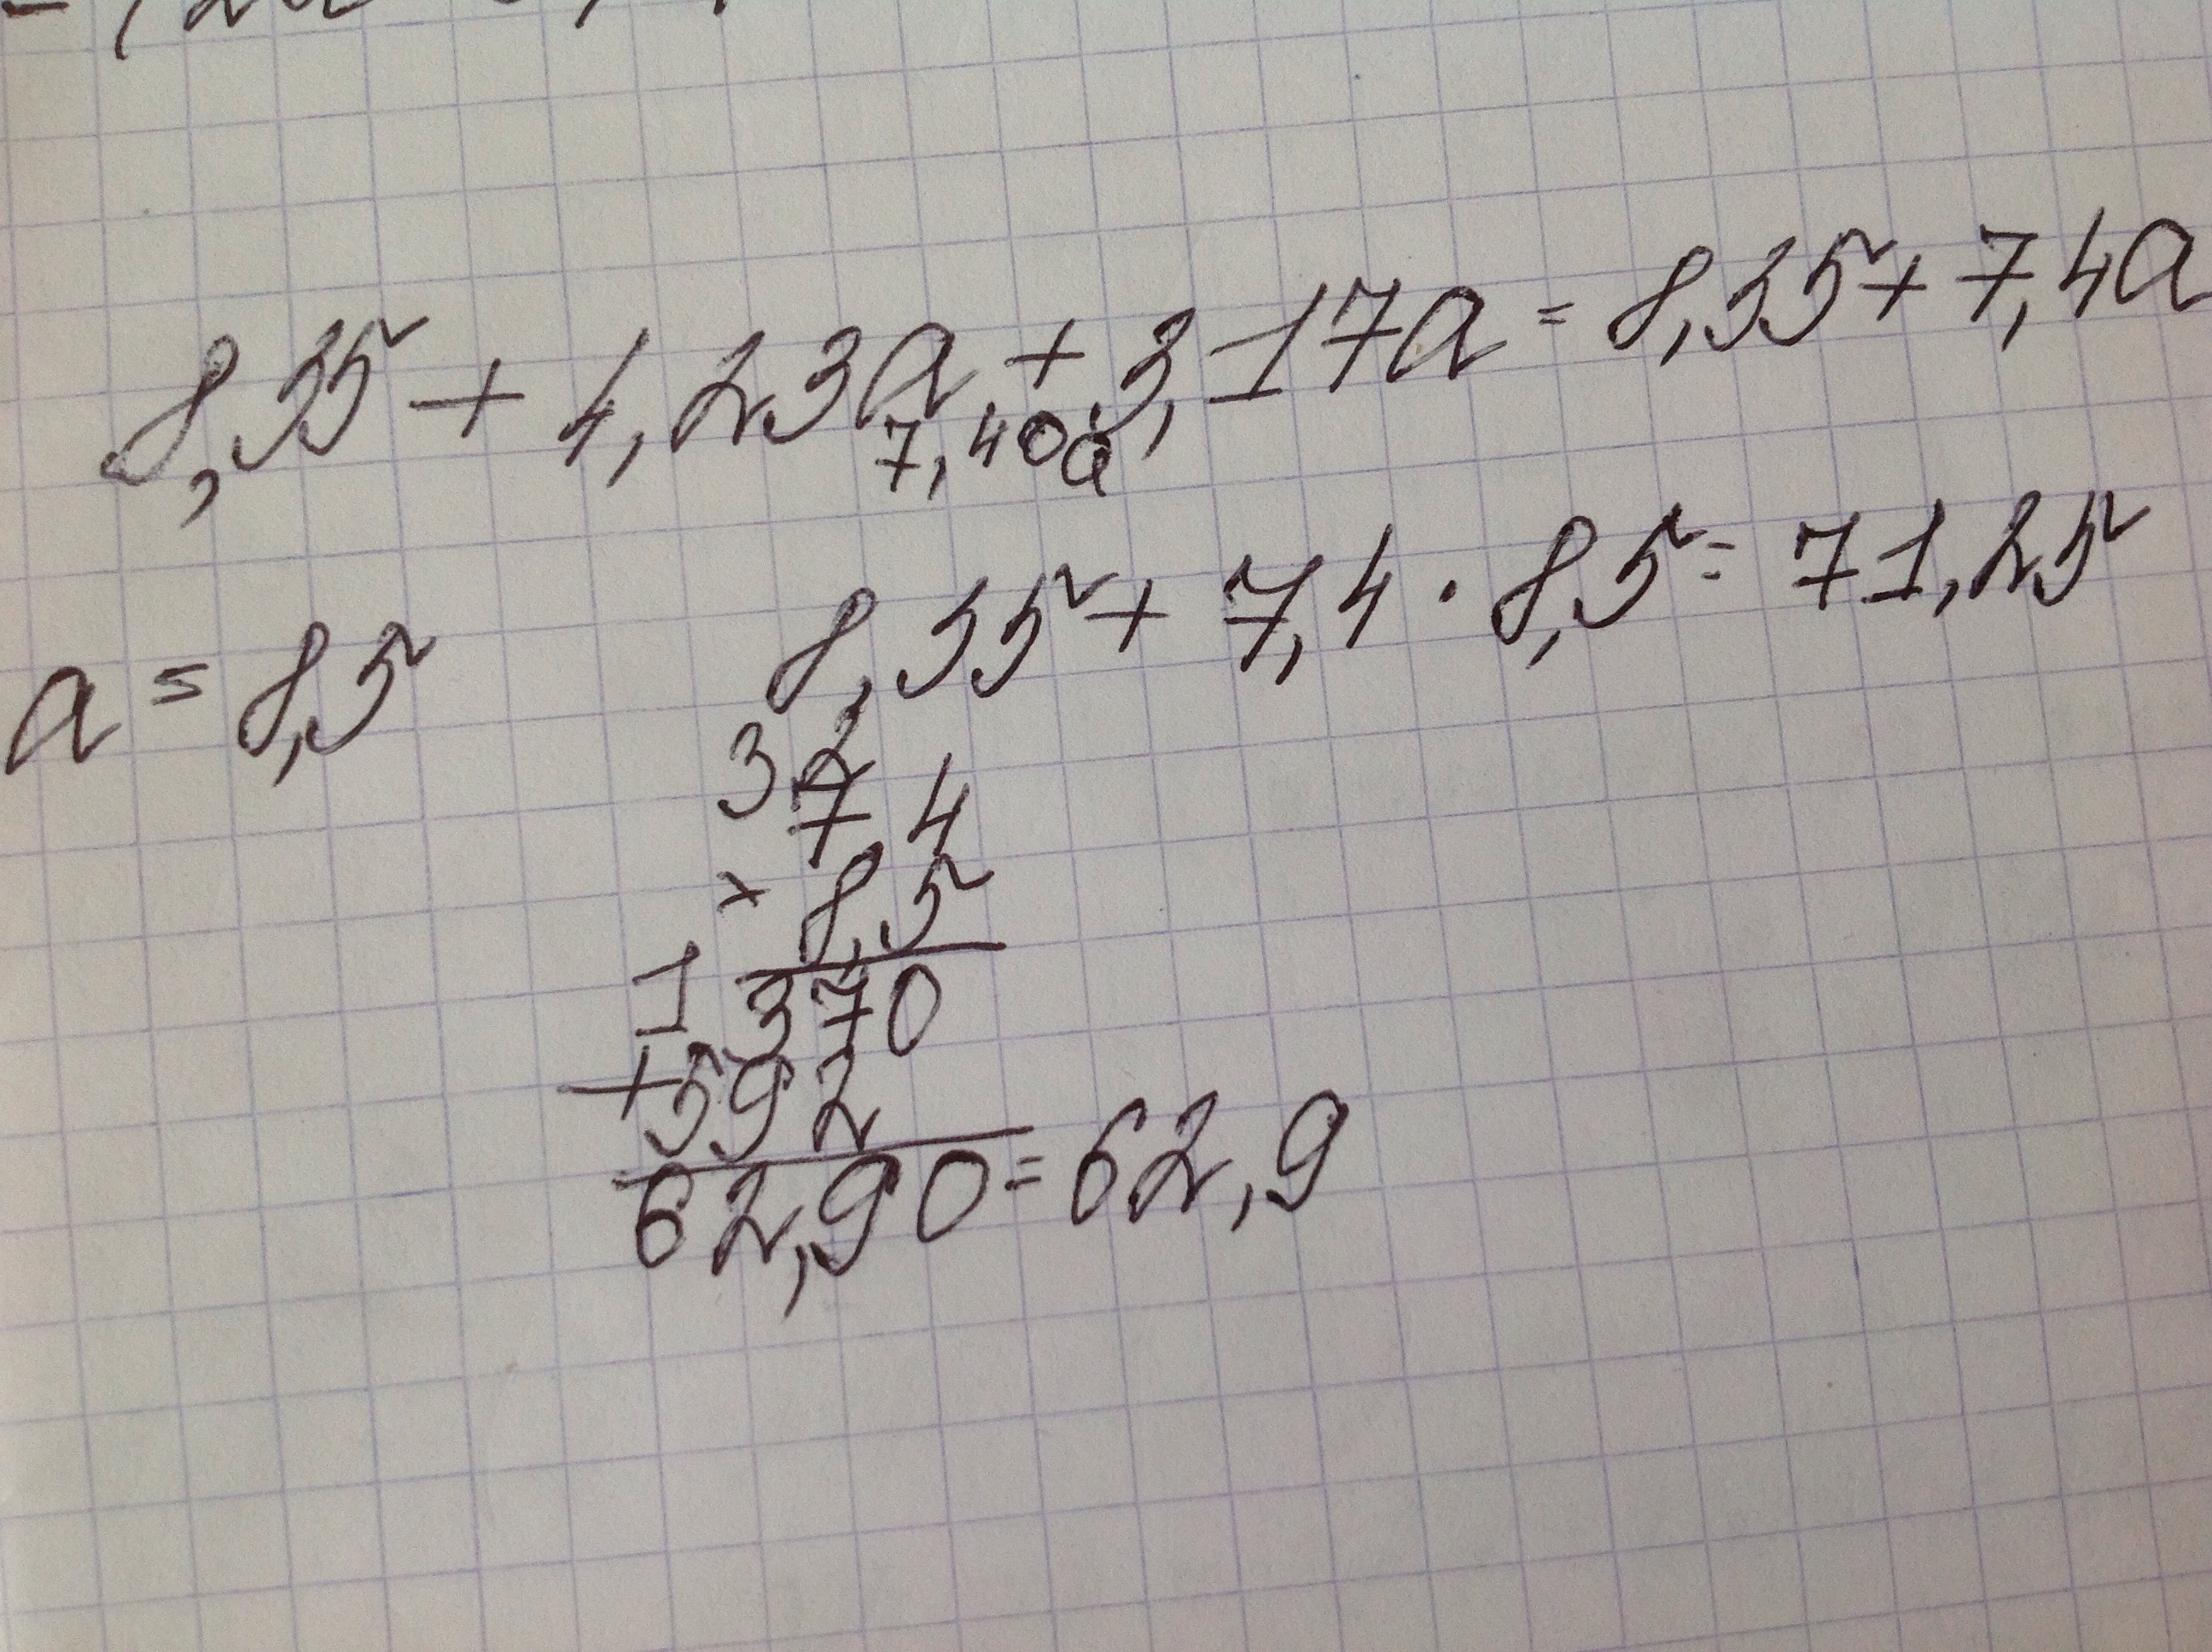 8,35 + 4,23a + 3,17a = 8,35 + 7,4a
7,40a
a = 8,5
8,35 + 7,4 · 8,5 = 71,25
32
7,4
× 8,5
1 370
+592
62,90 = 62,9